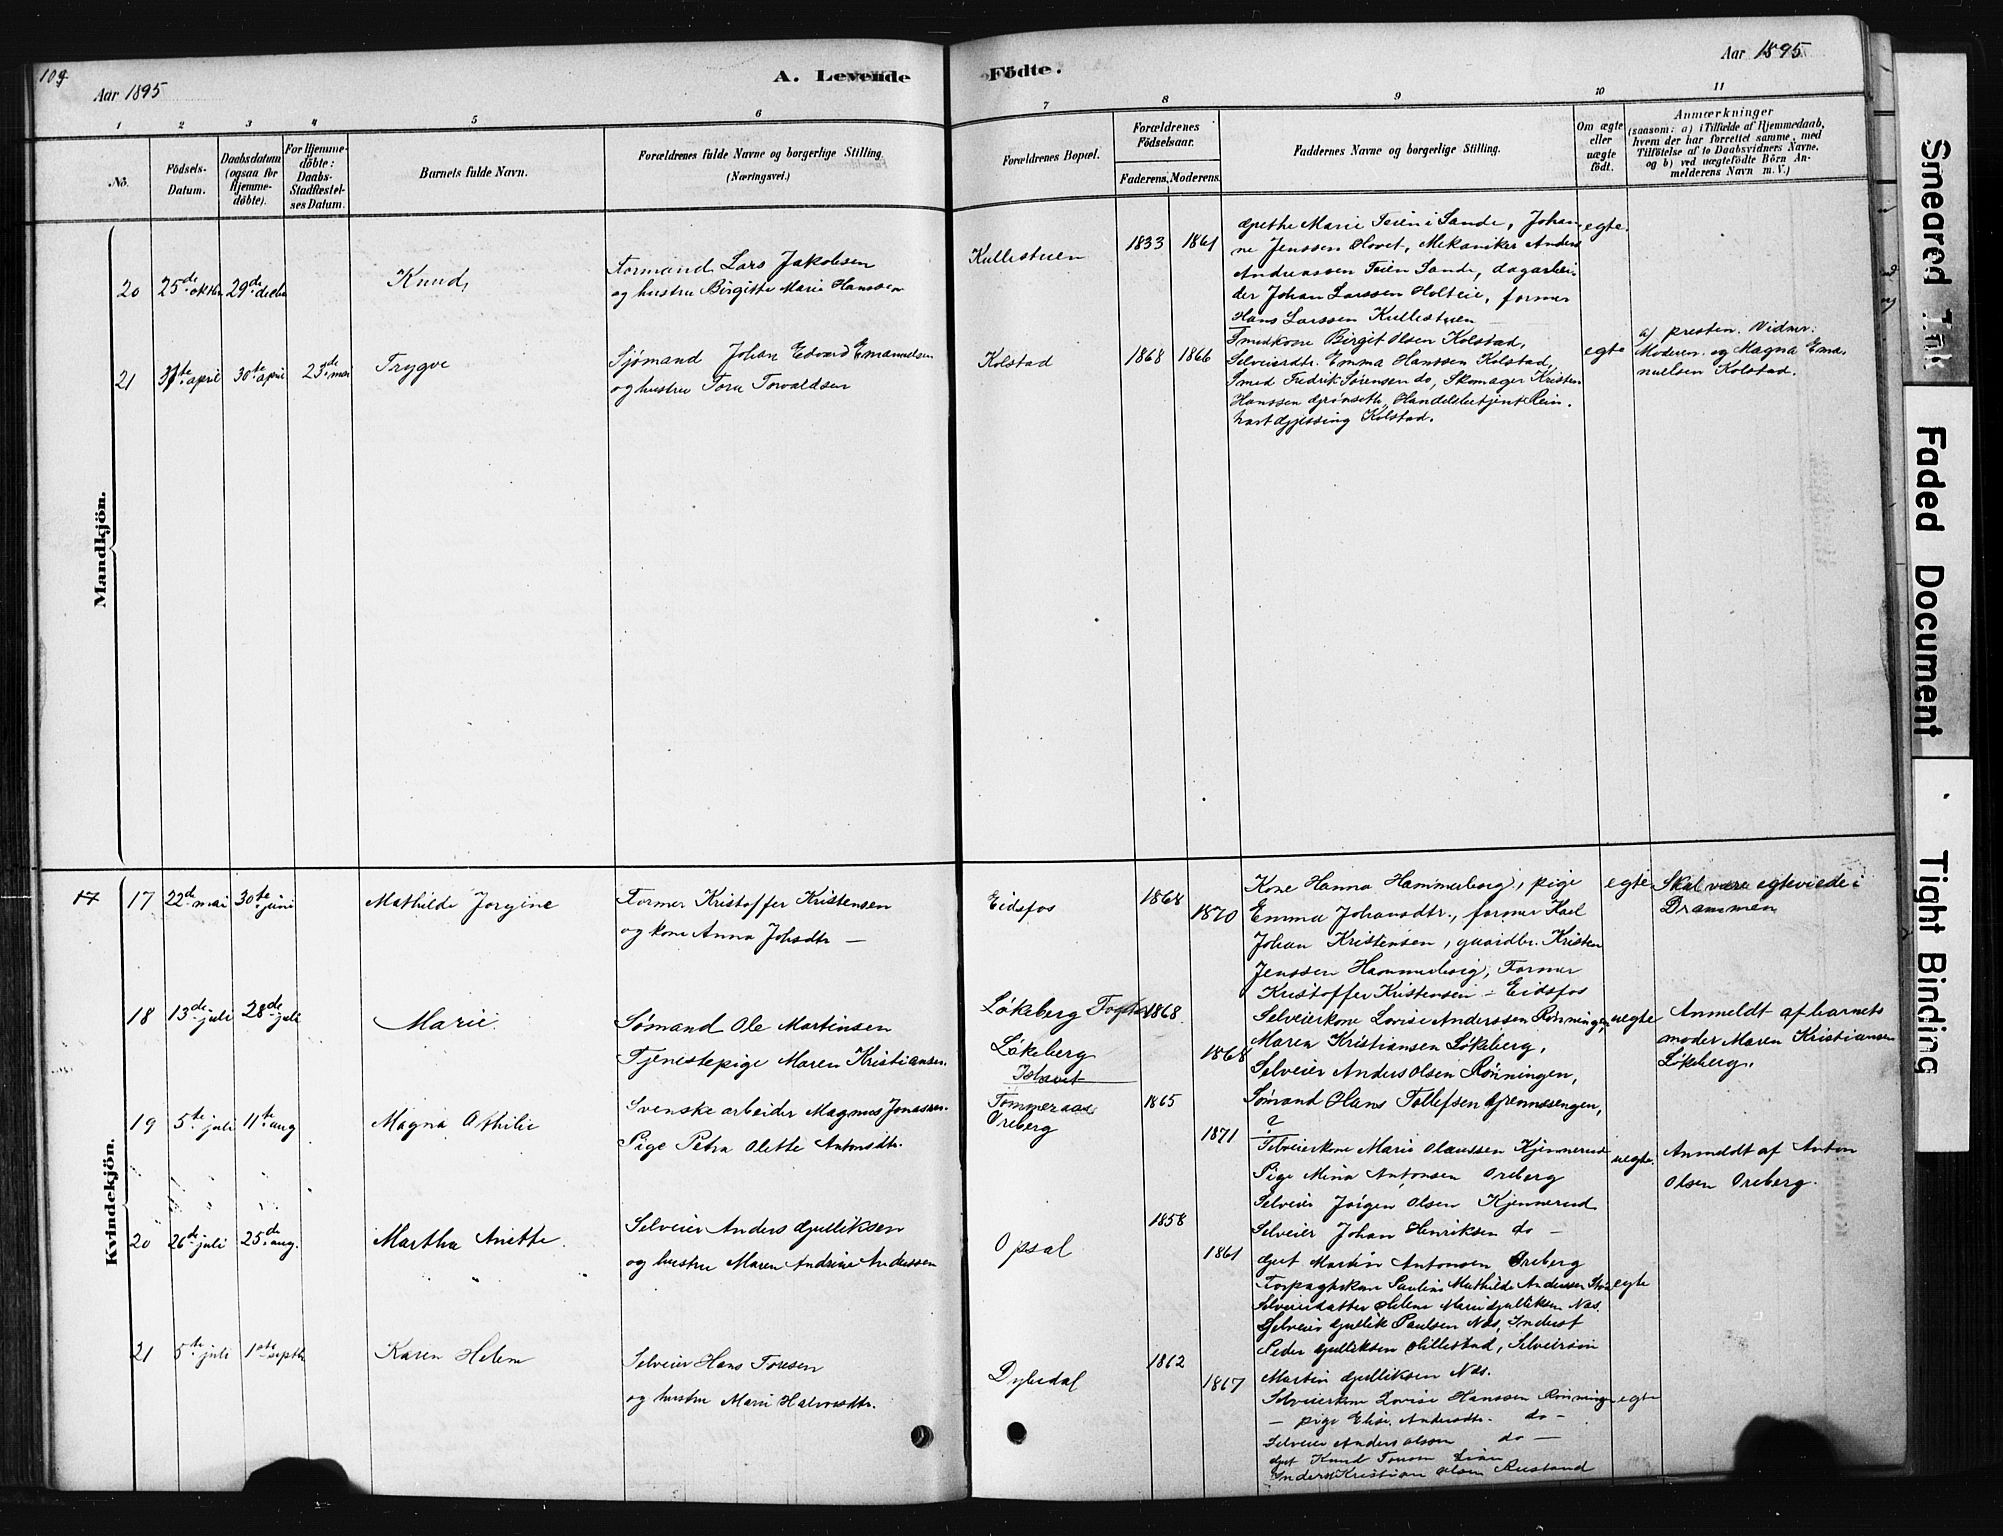 109
Aar 1895
A. Levende
Födte.
Aar 1895
1 2 3 4 5 6 7 8 9 10 11
No.
Födsels-
Datum.
Daabsdatum
(ogsaa for
Hjemme-
döbte).
For Hjemme-
döbte:
Daabs-
Stadfæstel-
ses Datum.
Barnets fulde Navn.
Forældrenes fulde Navne og borgerlige Stilling
(Næringsvei.)
Forældrenes Bopæl.
Forældrenes
Födselsaar.
Faderens. Moderens.
Faddernes Navne og borgerlige Stilling.
Om ægte
eller
uægte
födt.
Anmærkninger
(saasom: a) i Tilfælde af Hjemmedaab,
hvem der har forrettet samme, med
Tilföielse af to Daabsvidners Navne,
og b) ved uægtefödte Börn An-
melderens Navn m. V.)
Mandkjön.
20 25de oktbr 29de decbr
Knud
Formand Lars Jakobsen
og hustru Birgitte Marie Hanssen
Kullestuen
1833 1861
Grethe Marie Teien i Sande, Johan-
ne Jenssen Hovet, Mekaniker Anders
Andreassen Teien Sande, dagarbei-
der Johan Larssen Holteie, former
Hans Larssen Kullestuen
egte
21 30te april 23de mai
Trygve
Sjømand Johan Edvard Emanuelsen
og hustru Tora Torvaldsen
Kolstad
1868 1866
Smedkone Birgit Olsen Kolstad,
Selveierdtr. Emma Hanssen Kolstad,
Smed Fredrik Sørensen do, Skomager Kristen
Hanssen Grønseth, Handelsbetjent Rein-
hart Gjessing Kolstad.
egte
a) presten. Vidner:
Moderen og Magna Ema-
nuelsen Kolstad.
Kvindekjön.
17 17 22de mai 30te juni
Mathilde Jorgine
Former Kristoffer Kristensen
og kone Anna Johsdtr —
Eidsfos
1868
1870
Kone Hanna Hammerborg, pige
Emma Johansdtr., former Karl
Johan Kristensen, gaardbr. Kristen
Jenssen Hammerborg, Former
Kristoffer Kristensen - Eidsfos
egte
Skal være egteviede i
Drammen
18 13de juli 28de juli
Marie
Sømand Ole Martinsen
Tjenestepige Maren Kristiansen.
Løkeberg
Løkeberg
1868
1868
Selveierkone Lovise Anderssen Rønningen,
Maren Kristiansen Løkeberg,
Selveier Anders Olsen Rønningen,
Sømand Hans Tollefsen Grennesengen,
?
uegte
Anmeldt af barnets
moder Maren Kristiansen
Løkeberg.
19 5te juli 11te aug
Magna Othilie
Svenske arbeider Magnus Jonassen.
Pige Petra Olette Antonsdtr.
Tømmeraas
Oreberg
1865
1871
Selveierkone Marie Olaussen Kjennerud
Pige Mina Antonsen Oreberg
Selveier Jørgen Olsen Kjennerud
Selveier Johan Henriksen do —
Gut Martin Antonsen Oreberg
uegte.
Anmeldt af Anton
Olsen Oreberg.
20 26de juli 25de aug.
Martha Anette
Selveier Anders Gulliksen
og hustru Maren Andrine Anderssen
Opsal
1858
1861
Mathilde Anderssen
Selveierdatter Helene Marie Gulliksen Nes.
Selveier Gullik Paulsen Nes, Inderst
Peder Gulliksen Hillestad, Selveiersøn
Martin Gulliksen Nes.
egte
21 5te juli 1ste septbr
Karen Helene
Selveier Hans Toresen
og hustru Marie Halvorsdtr.
Dybedal
1862
1867
Selveierkone Lovise Hanssen Rønningen
— pige Elise Andersdtr. do —
Selveier Anders Olsen do —
Gut Knud
Inderst Kristian Olsen Rustand
egte
Smeared Ink
Faded Document
Tight Binding